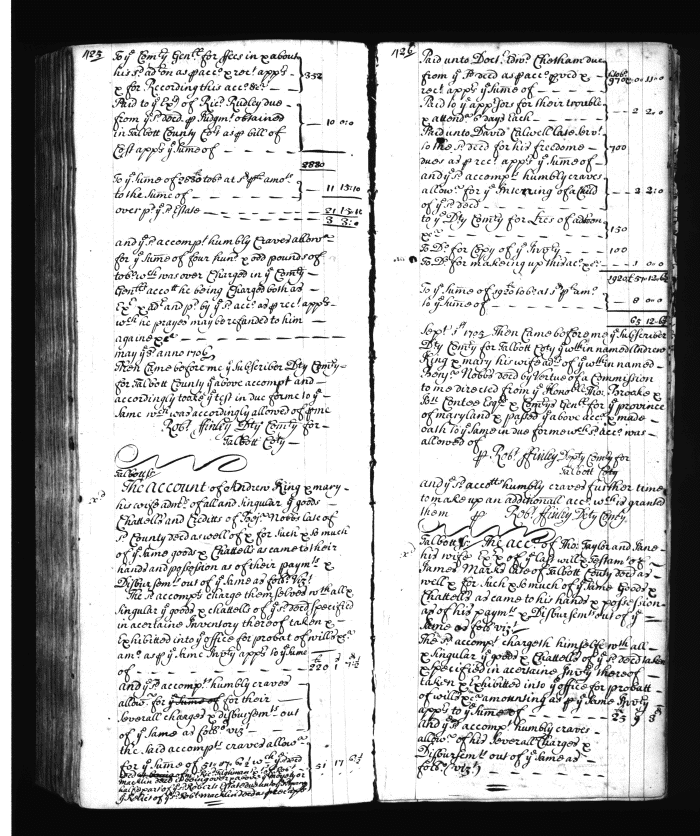 425
To ye Comty Genll for ffees in x about
his sd adon as p acc x rect apprs
x for Recording this acc &c
352
Paid to ye Exrs of Ricd Ridley due
from ye sd decd p Judgmt obtained
in Talbott County Cort as p bill of
Cost apprs ye Sume of
10 0:0
2880
To ye Sume of 2880 tobo at s p amot
to the Sume of
11 13:10
over pd ye sd Estate
21 13:10
3 3:0
and ye sd accompt humbly Craves allowce
for ye Sume of four hund x odd pounds of
tobo wch was over Charged in ye Comty
Genlls acctt he being Charged both as
Exr x adr and pd by ye sd acct as p rect apprs
wch he prayes may be refunded to him
againe &c
may ye 3d anno 1706
Then Came before me ye Subscriber Dty Comty
for Talbott County ye above accompt and
accordingly to ake ye test in due forme to ye
Same wch was accordingly allowed of p me
Robt ffinley Dty Comty for
Talbott Coty
Talbott ss
The Account of Andrew King x mary
his wife admx of all and Singular ye goods
Chattells and Creditts of Benja Nobbs late of
sd County decd as well of x for Such x So much
of ye Same goods x Chattells as came to their
hand and possession as of their paymts x
Disbursemts out of ye Same as folls Vizt
The sd accompts charge themselves wth all x
Singular ye goods x chattells of ye sd decd Specified
in a certaine Inventory thereof taken x
Exhibitted into ye office for probat of wills &c
amo as p ye Same Invty apprs to ye Sume
of
220 1 7
and ye sd accompts humbly craves
allowce for ye Sume of for their
Severall charges x disbursemts out
of ye Same as follo viz
the said accompts craves allowce
for ye Sume of 51: 17: 6½ wch ye decd
51 17 6½
426
Paid unto Doctr Edwd Chetham due
from ye sd decd as p acc prved x
rect apprs ye Sume of
970 00 11 0
Paid to ye apprsors for their trouble
x attendce 3 days each
2 2:0
Paid unto David Calwell late Servt
to the sd decd for his freedome
dues as p rect apprs ye Sume of
700
and ye accompt humbly craves
allowce for ye Interring of a Child
of ye sd decd
2 2:0
to ye Dty Comty for Lres of admon
&c
150
To Do for Copy of ye Invty
100
To Do for makeing up this acc &c
1 0:0
1920 57:12:6½
To ye Sume of 1920 tobo at s p amo
to ye Sume of
8 0:0
65 12:6½
Septr 5d 1705 Then Came before me ye Subscriber
Dty Comty for Talbott Coty ye within named Andrew
King x mary his wife adx of ye within named
Benja Nobbs decd by Vertue of a Commission
to me directed from ye Honoble Tho: Brooke x
Comrys Genll for ye province
of maryland x passed ye above acc x made
oath to ye Same in due forme wch sd acc was
allowed of
p Robt ffinley Depty Comty for
Talbott Coty
and ye sd acctt humbly craves further time
to make up an additionall acc wch is granted
them p Robt ffinley Dty Comty
Talbott ss The Acc of Tho: Taylor and Jane
his wife Exx of ye last will x Testamt of
James Marks late of Talbott County decd as
well x for Such x So much of ye Same Goods x
Chattells as came to his hands x possession
as of his paymts x Disbursemts out of ye
Same as folls vizt
The sd accompt chargeth himself wth all
x Singular ye goods x Chattells of ye sd decd taken
x specified in a certaine Invty thereof
taken x Exhibitted into ye office for probatt
of wills &c amounting as p ye Same Invty
apprs to ye Sume of
25 9 3
and ye sd accompt humbly craves
allowce of his Severall Charges x
Disbursemts out of ye Same as
follo (vizt)